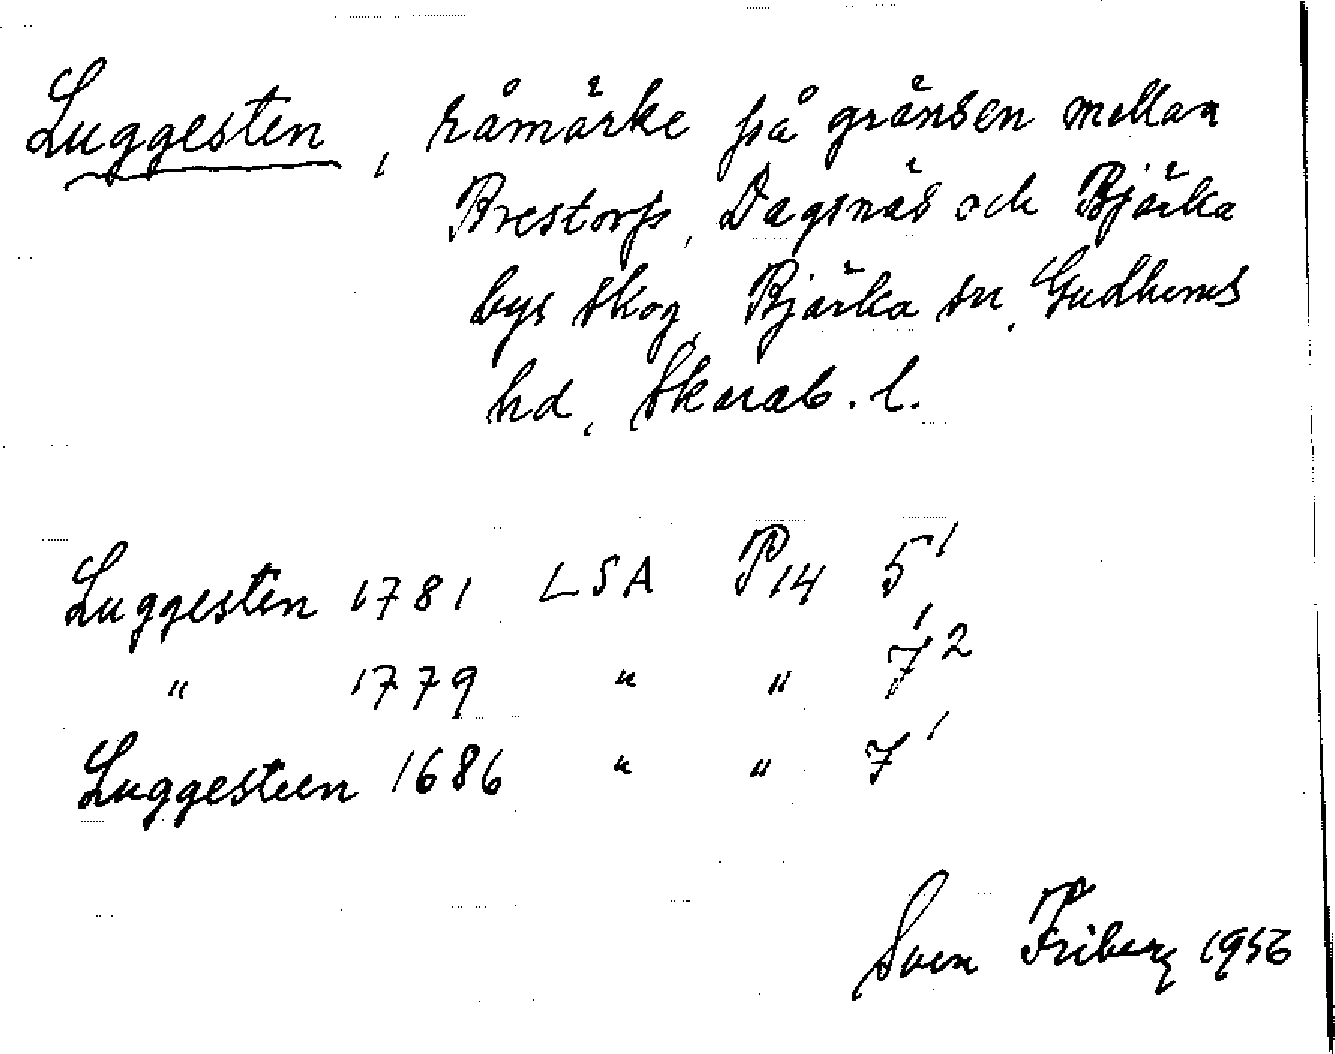 Luggesten, råmärke på gränsen mellan
Brestorp, Dagsnäs och Bjärka
bys skog, Bjärka sn, Gudhems
hd, Skarab. l.
Luggesten 1781 LSA P14 5¹
" 1779 " " 7²
Luggesteen 1686 " " 7¹
Sven Friberg 1956